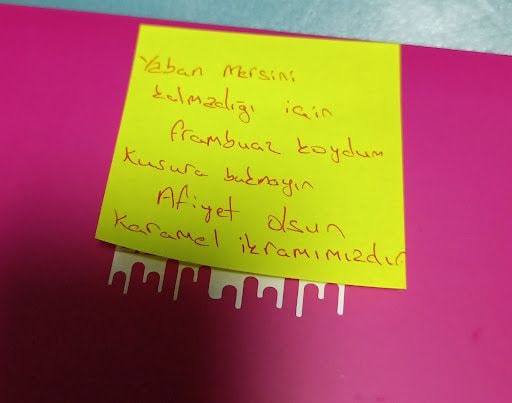 Yaban Mersini
kalmadığı için
frambuaz koydum
Kusura bakmayın
Afiyet olsun
Karamel ikramımızdır